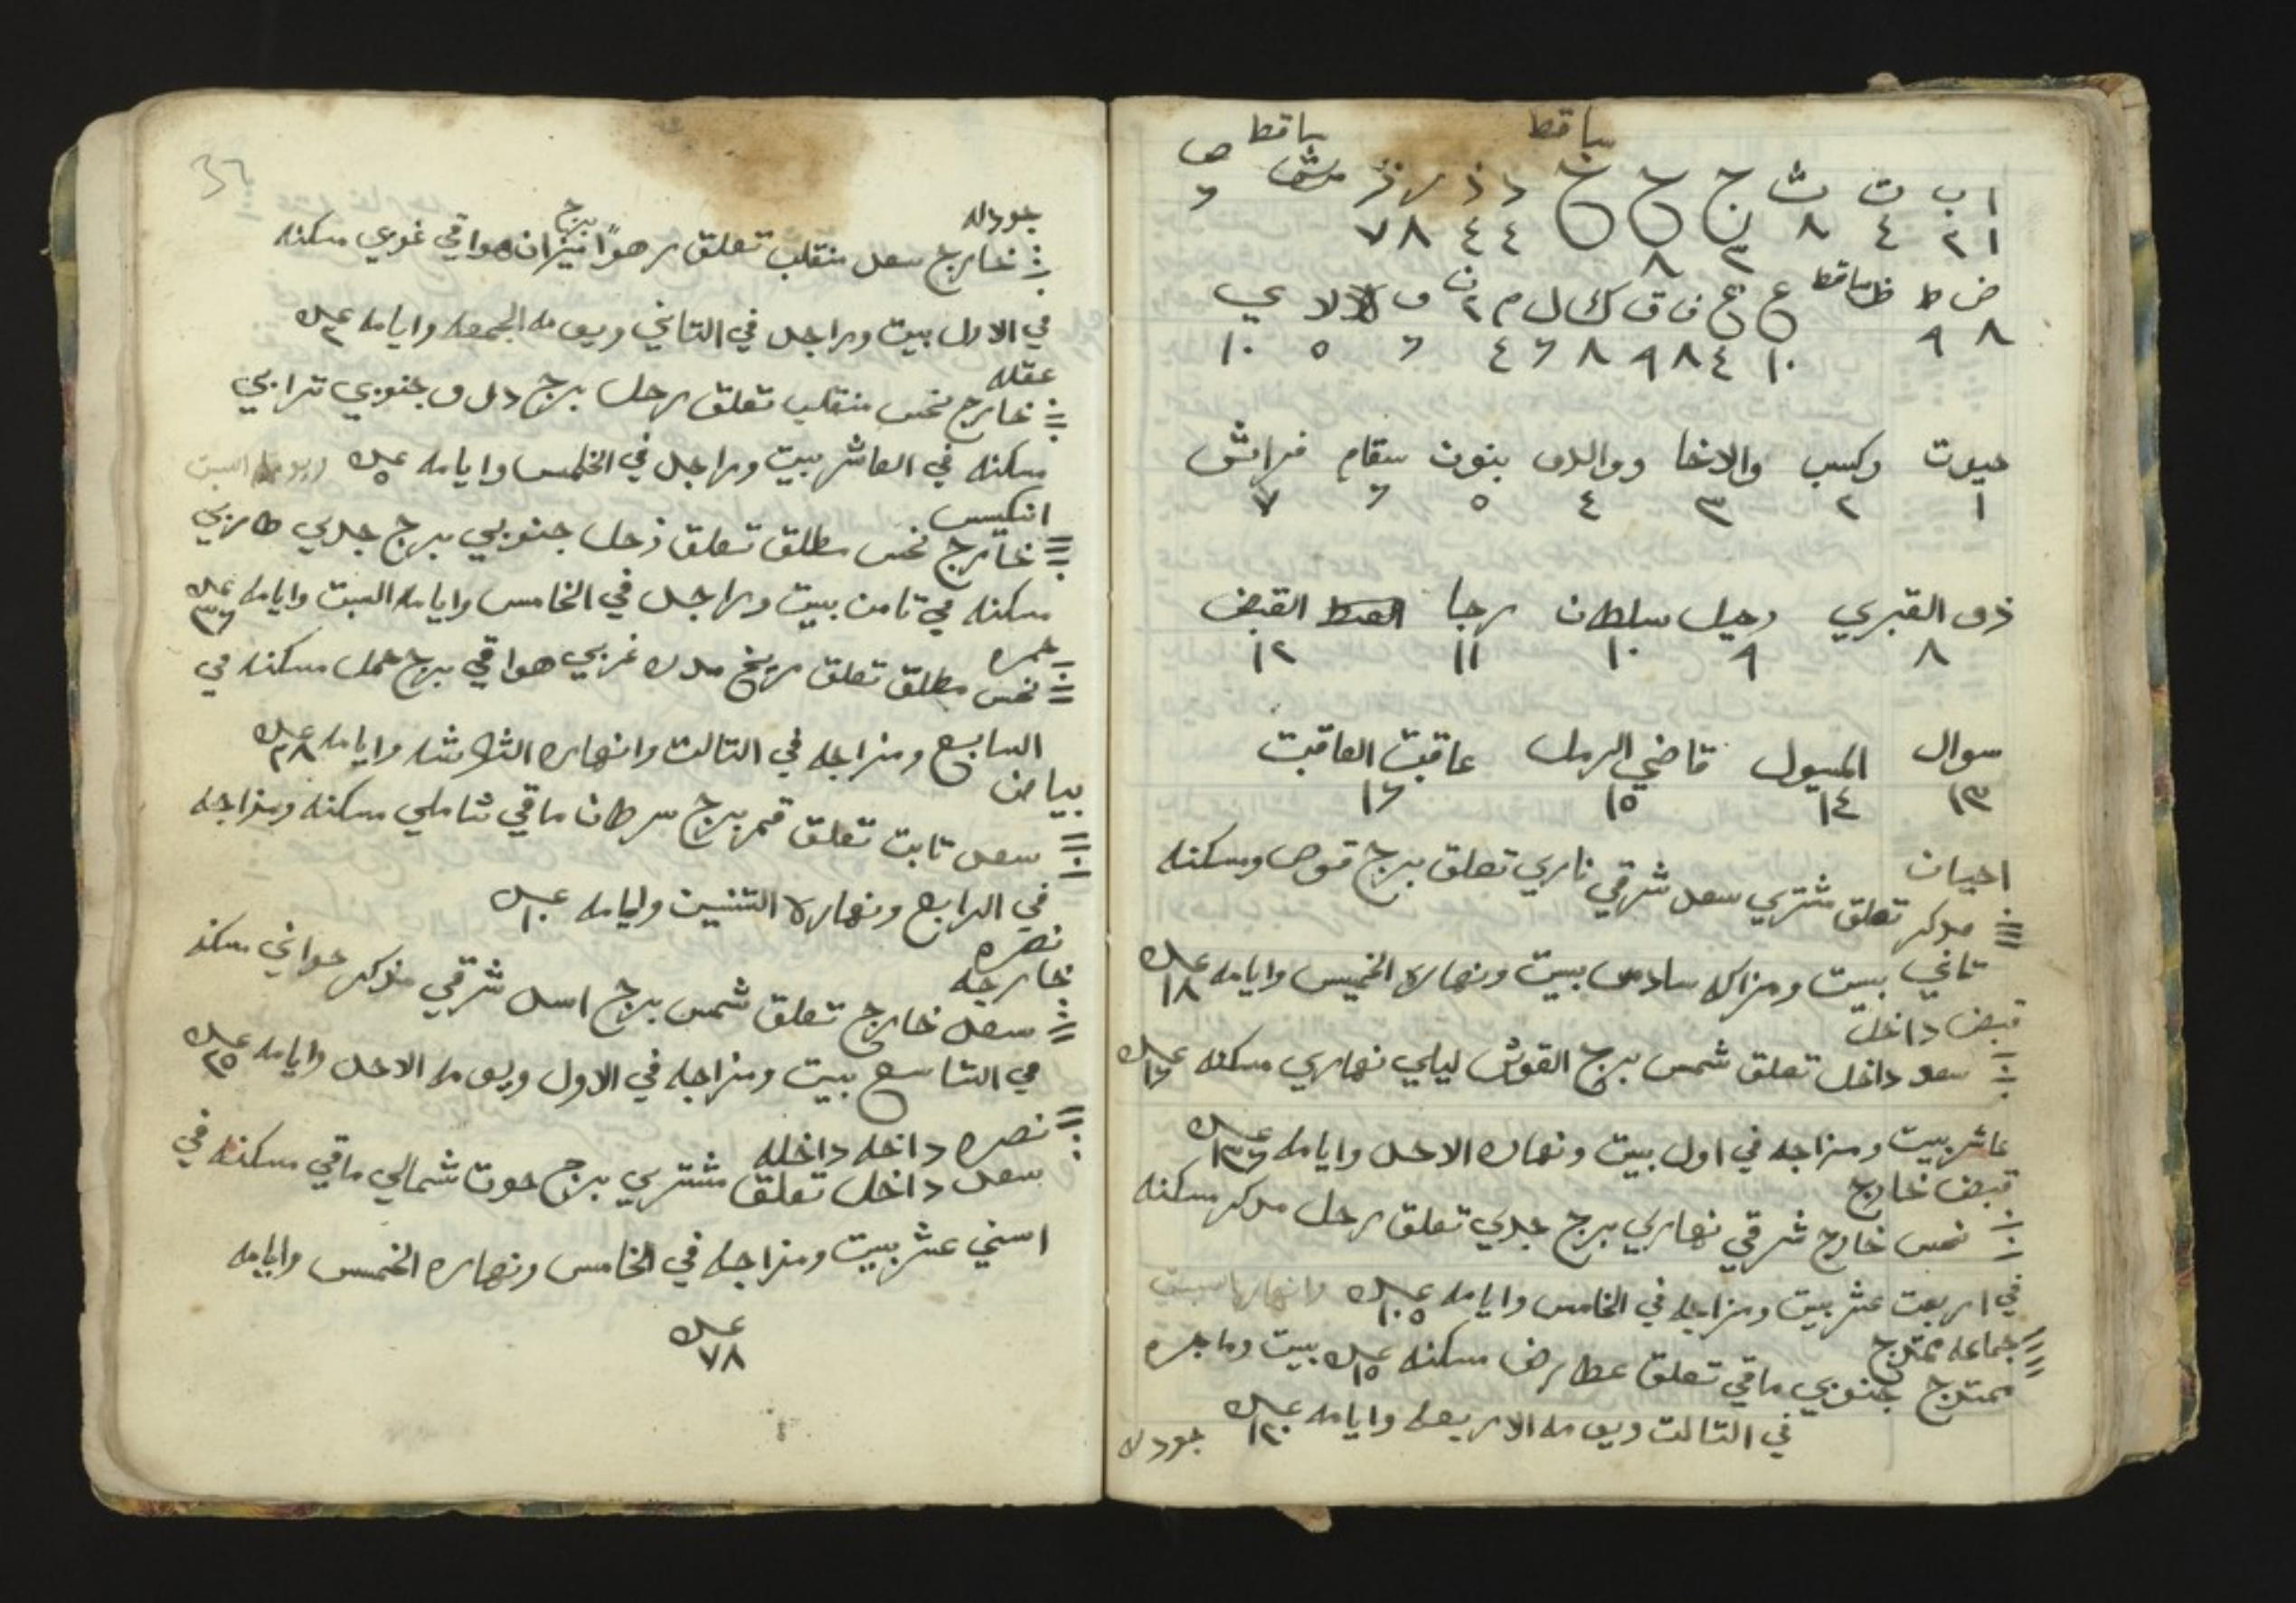 ساقط ساقط
ا ب ت ث ج ح خ د ذ ر ز س ش ص
١ ٢ ٤ ٨ ٣ ٨ ٤ ٤ ٨ ٧ ٦
ض ط ظ ساقط ع غ ف ق ك ل م ن و لا ي
٨ ٩ ١٠ ٤ ٨ ٩ ٨ ٦ ٤ ٢ ٦ ٥ ١٠
حيوت وكسب والاخا ووالدو بنون سقام فراش
١ ٢ ٣ ٤ ٥ ٦ ٧
ذو القبري رحيل سلطان رجا القبض
٨ ٩ ١٠ ١١ ١٢
سوال المسول قاضي الرمل عاقبت العاقبت
١٣ ١٤ ١٥ ١٦
احيان
مدكر تعلق مشتري سعد شرقي ناري تعلق برج قوص ومسكنه
تاني بيت ومزاكه سادس بيت ونهاره الخميس وايامه عدد ١٨
قبض داخل
سعد داخل تعلق شمس برج القوش ليلي نهاري مسكنه عدد
عاشر بيت ومزاجه في اول بيت ونهاره الاحد وايامه عدد ١٣٦
قبض خارج
نحس خارج شرقي نهاري برج جدي تعلق رحل مدكر مسكنه
في اربعت عشر بيت ومزاجه في الخامس وايامه عدد ١٠٥ وانهارها سبت
جماعه ممتزج
ممتزج جنوبي ماقي تعلق عطارض مسكنه عدد ١٥ بيت وماجره
في التالت ويومه الاربعه وايامه عدد ١٢٠
جودله
جودله
خارج سعد منقلب تعلق زهرا برج ميزان هواقي غربي مسكنه
في الاول بيت ومراجل في التاني ويومه الجمعه وايامه عدد ٢
عقله
خارج نحس منقلب تعلق رحل برج دلو جنوبي ترابي
مسكنه في العاشر بيت ومراجل في الخمس وايامه عدد ٥ ويومه السبت
انكيس
خارج نحس مطلق تعلق ذحل جنوبي برج جدي
مسكنه في تامن بيت ومراجل في الخامس وايامه السبت وايامه عدد ٣٦
حمره
نحس مطلق تعلق مريخ مدكر غربي هواقي برج حمل مسكنه في
السابع ومزاجه في التالت وانهاره الثلاثه وايامه عدد ٢٨
بياض
سعد تابت تعلق قمر برج سرطان ماقي شاملي مسكنه ومزاجه
في الرابع ونهاره التنين وايامه عدد ١٠
نصره
خارجه
سعد خارج تعلق شمس برج اسد شرقي مذكر حواني مسكنه
في التاسع بيت ومزاجه في الاول ويومه الاحد وايامه عدد ٢٥
نصره داخله داخله
سعد داخل تعلق مشتري برج حوت شمالي ماقي مسكنه في
اسني عشر بيت ومزاجه في الخامس ونهاره الخمس وايامه
عدد
٧٨